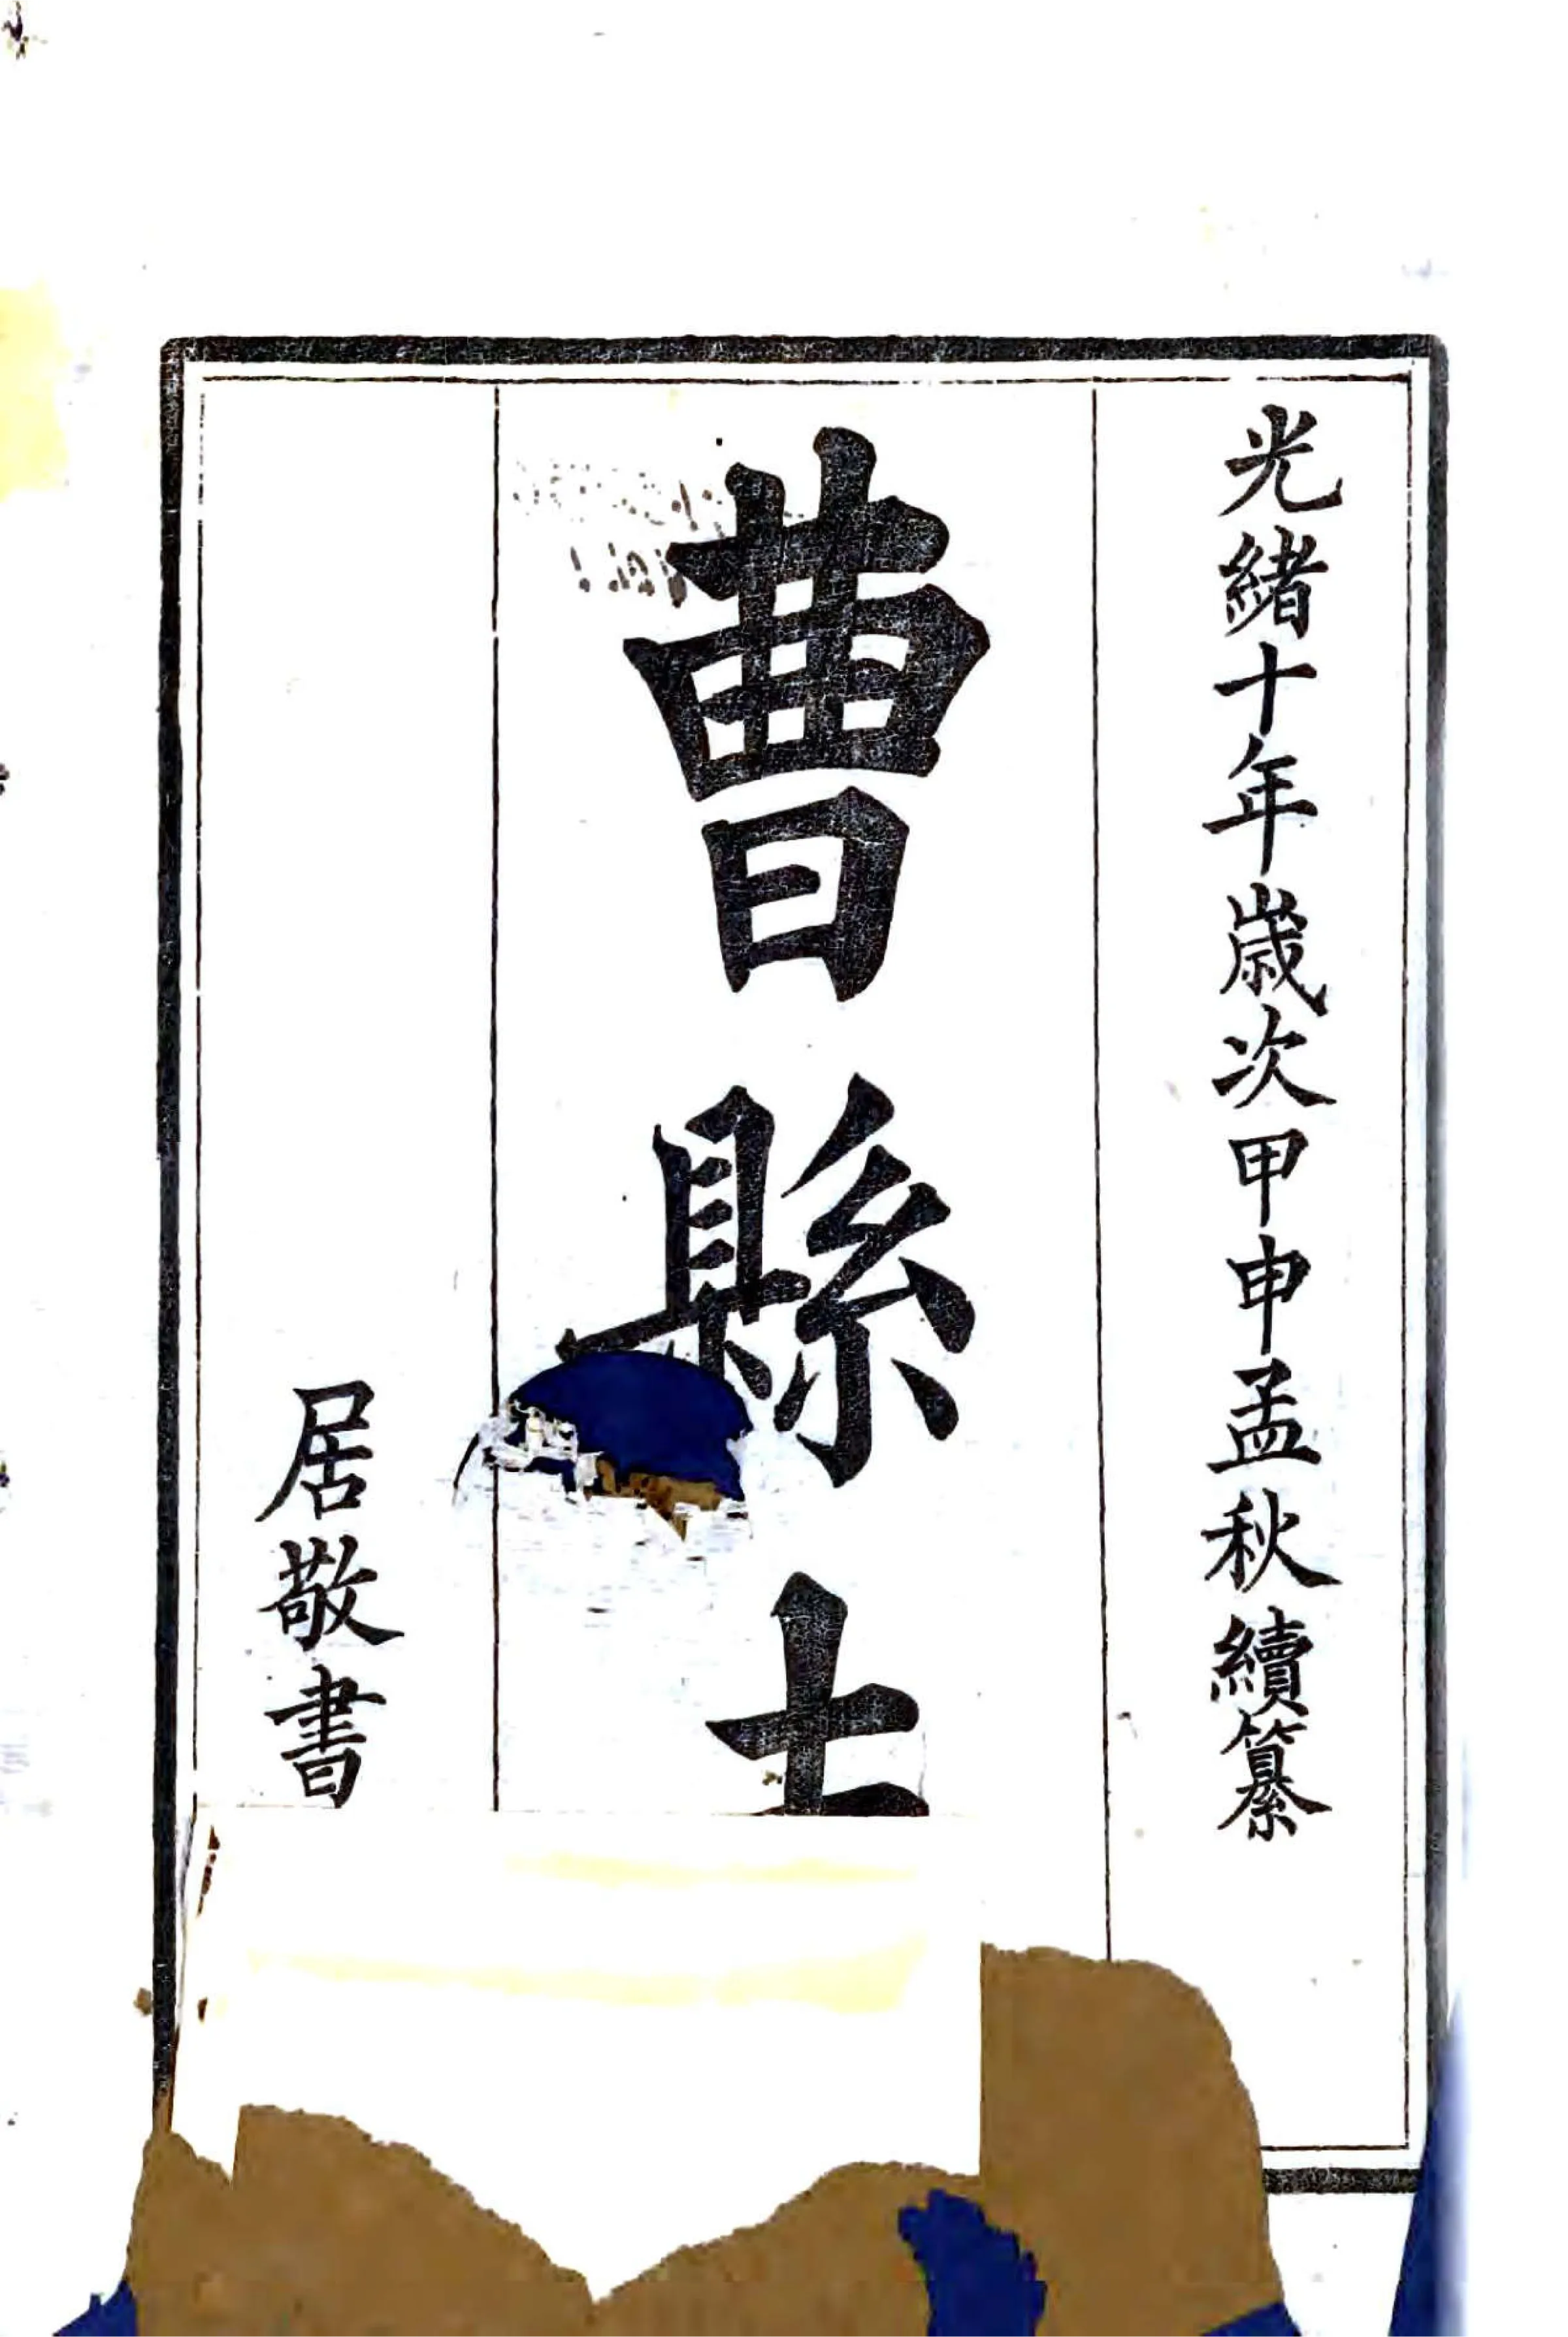 光緒十年歲次甲申孟秋續纂
曹縣
居敬書